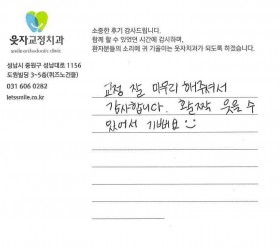 웃자교정치과
smile orthodontic clinic
성남시 중원구 성남대로 1156
도원빌딩 3~5층(퀴즈노건물)
031 606 0282
letssmile.co.kr
소중한 후기 감사드립니다.
함께 할 수 있었던 시간에 감사하며,
환자분들의 소리에 귀 기울이는 웃자치과가 되도록 하겠습니다.
교정 잘 마무리 해주셔서
감사합니다. 활짝 웃을 수
있어서 기뻐요